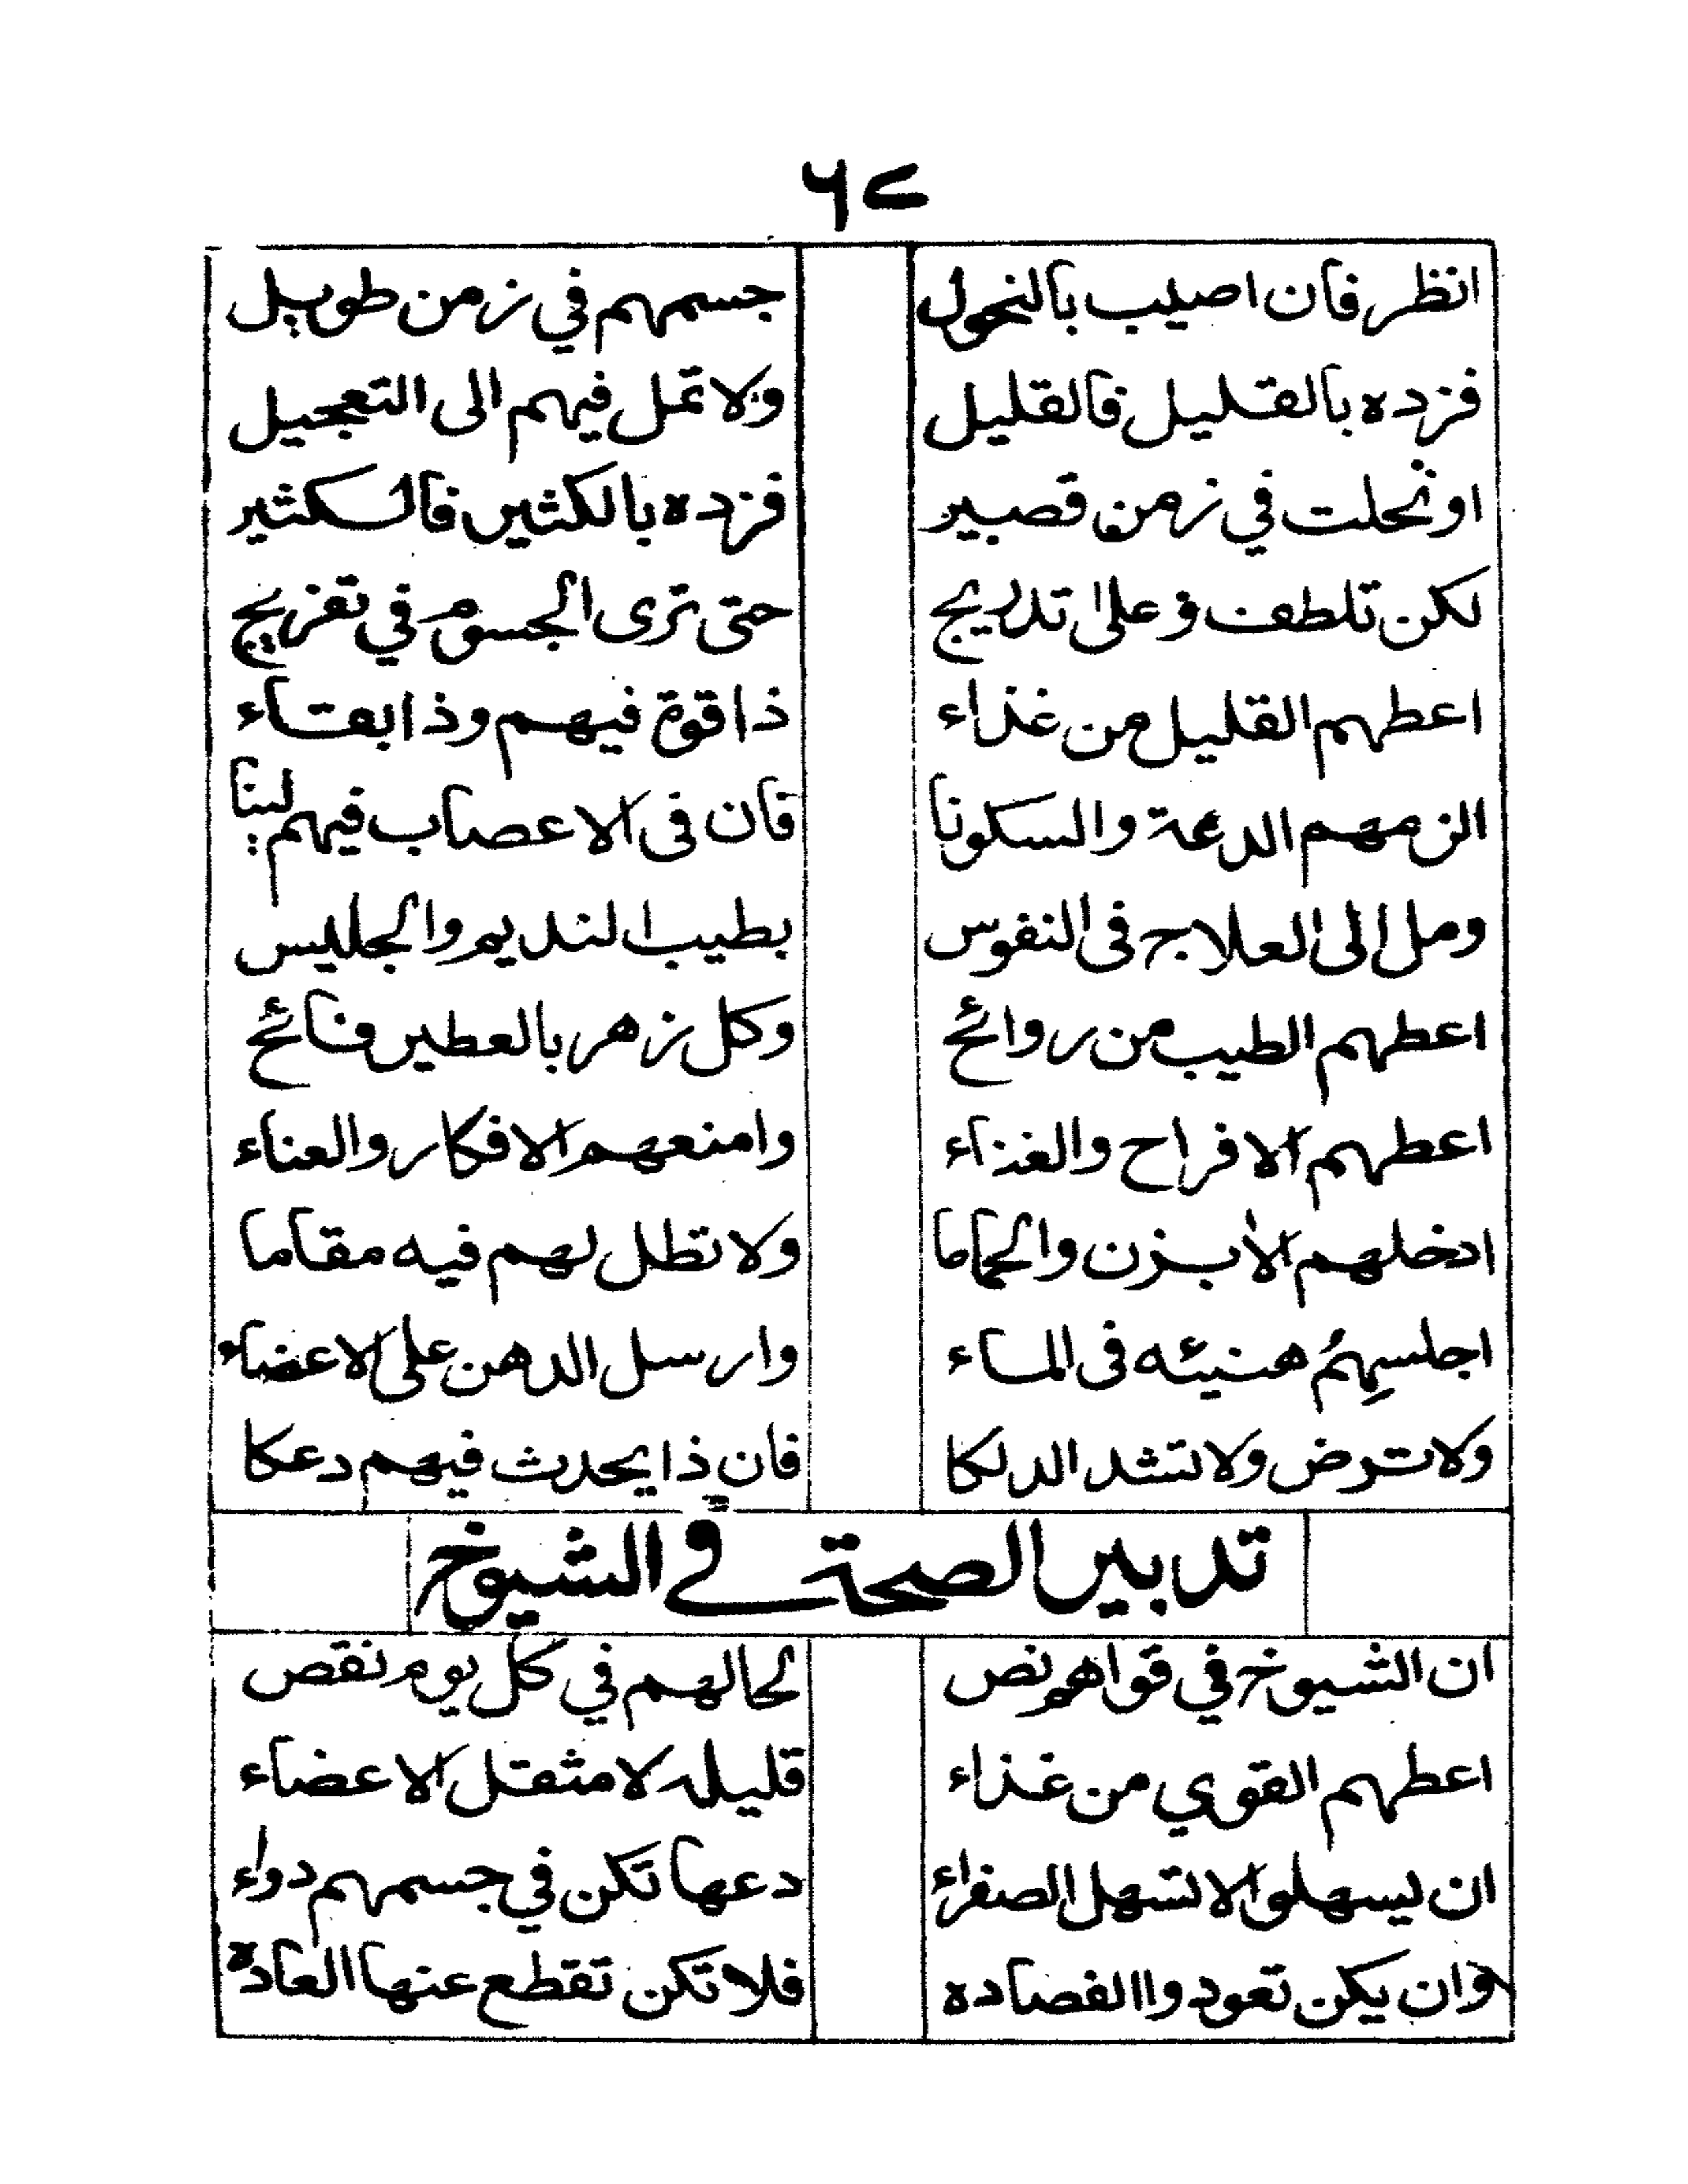 ٦٢
انظر فان اصيب بالنحول جسمهم في زمن طويل
فزده بالقليل فالقليل ولا تمل فيهم الى التعجيل
او نحلت في زمن قصير فزده بالكثير فالكثير
لكن تلطف وعلى تدريج حتى ترى الجسوم في تفريج
اعطهم القليل من غذاء ذا قوة فيهم وذا بقاء
الزمهم الدعة والسكونا فان فى الاعصاب فيهم لينا
ومل الى العلاج فى النفوس بطيب النديم والجليس
اعطهم الطيب من روائح وكل زهر بالعطير فائح
اعطهم الافراح والغذاء وامنعهم الافكار والعناء
ادخلهم الأبزن والحماما ولا تطل لهم فيه مقاما
اجلسهم هنيئه فى الماء وارسل الدهن على الاعضاء
ولا ترض ولا تشد الدلكا فان ذا يحدث فيهم دعكا
تدبير الصحة في الشيوخ
ان الشيوخ في قواهم نص لحالهم في كل يوم نقص
اعطهم القوي من غذاء قليله لا مثقل الاعضاء
ان يسهلوا لا تسهل الصفراء دعها تكن في جسمهم دواء
وان يكن تعودوا الفصاده فلا تكن تقطع عنها العاده